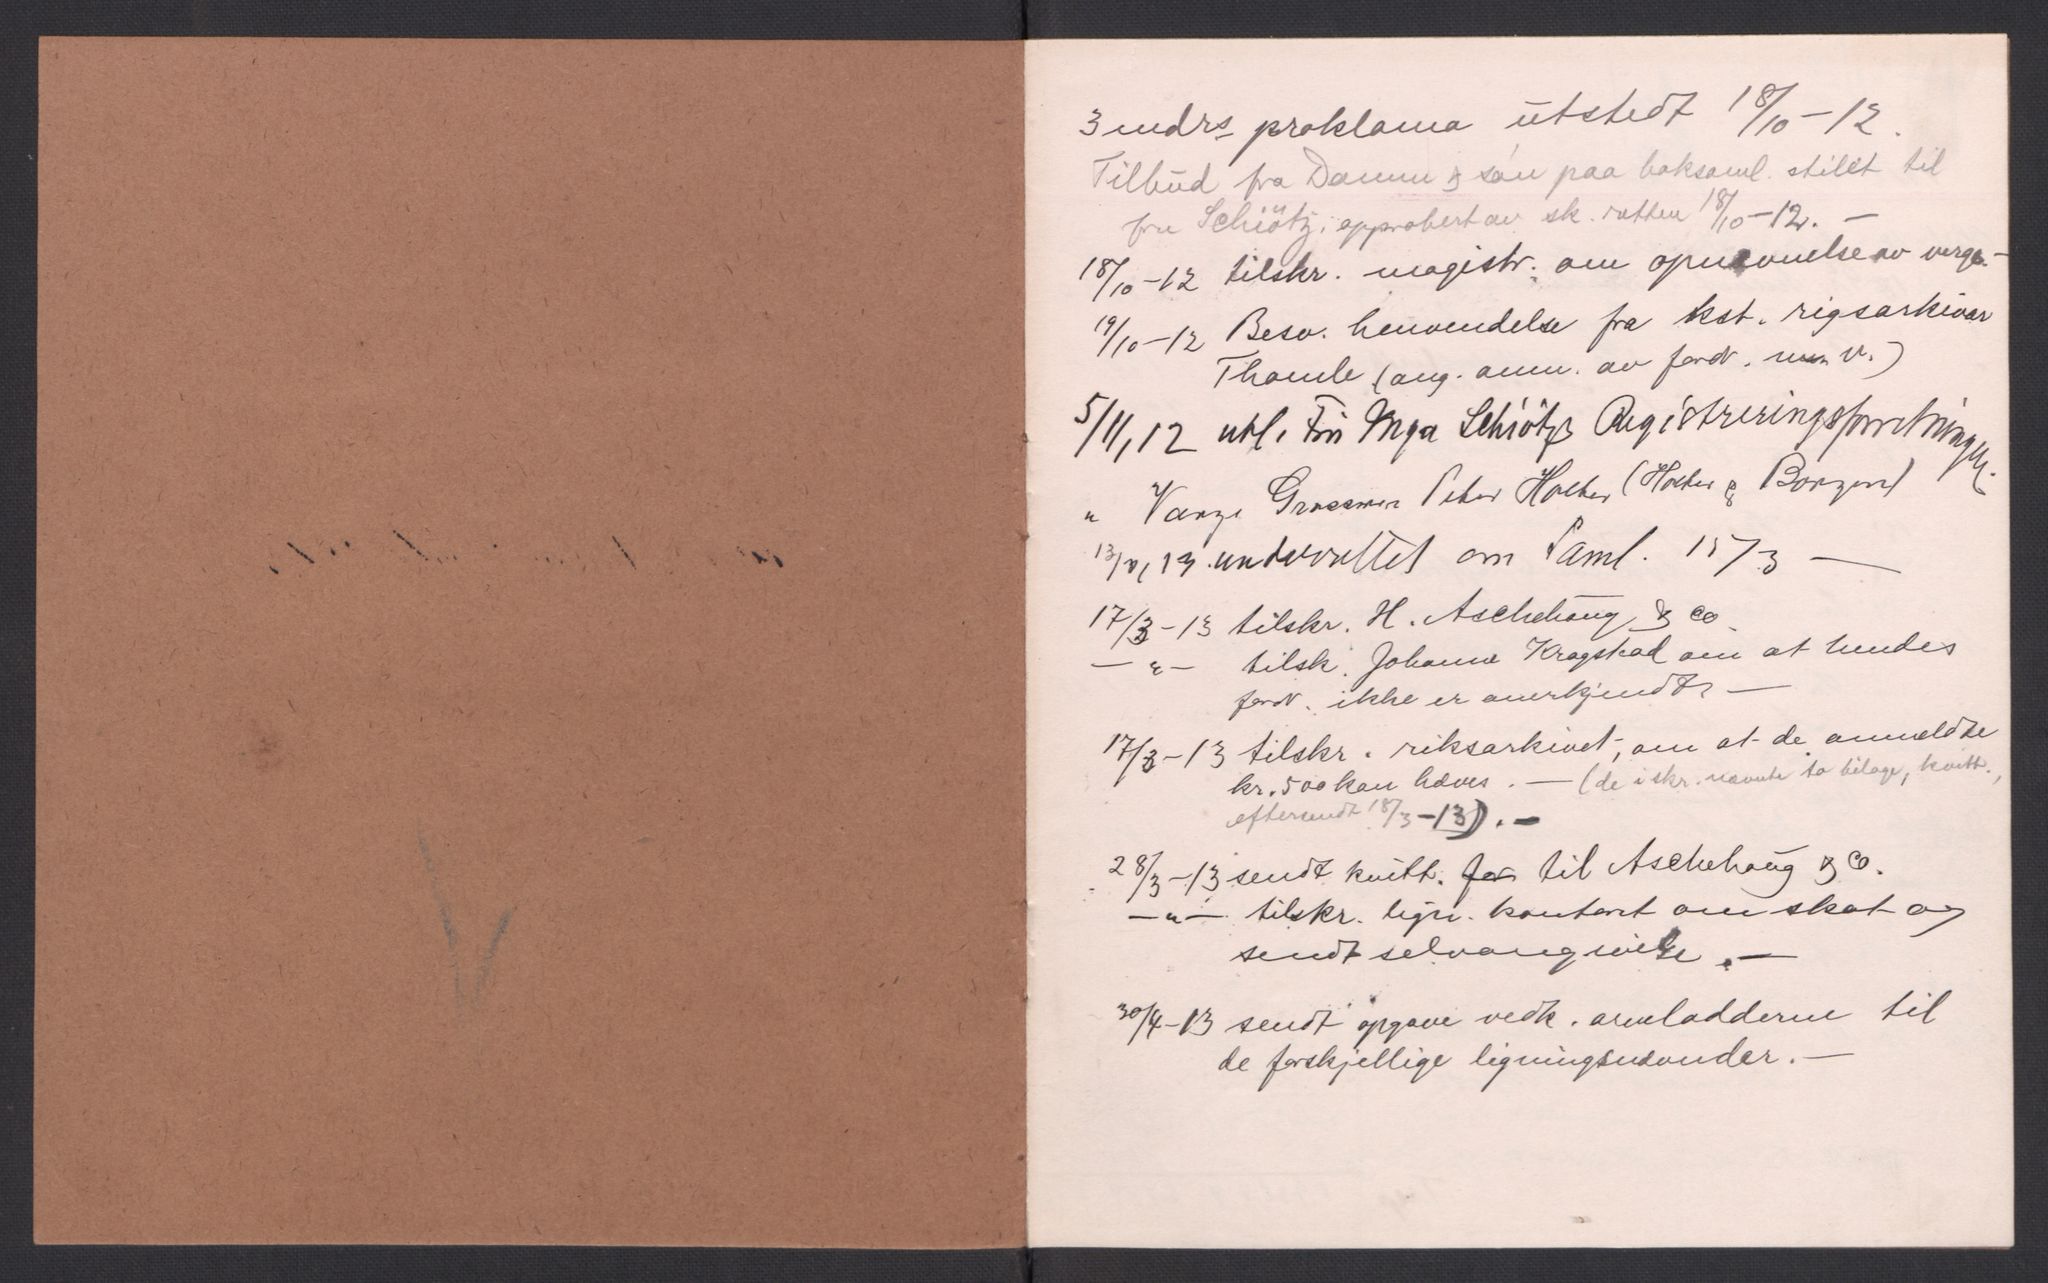 3 mdrs proklama utstedt 18/10-12.
Tilbud fra Damm & søn paa boksaml. stillet til
fru Schiötz, approbert av sk. retten 18/10-12. —
18/10-12 tilskr. magistr. om opnævnelse av verge. —
19/10-12 Besv. henvendelse fra kst. rigsarkivar
Thomle (ang. anm. av fordr. m. v.)
5/11, 12 utl. Fru Inga Schiötz Registreringsforretningen.
" Værge Grosserer Peter Holter (Holter & Borgen)
13/3, 13. underrettet om Saml. 15/3 —
17/3-13 tilskr. H. Aschehoug & Co.
— " — tilsk. Johanne Kragstad om at hendes
fordr. ikke er anerkjendt. —
17/3-13 tilskr. riksarkivet, om at de anmeldte
kr. 500 kan hæves. — (de i skr. nævnte to bilage, kvitt.,
eftersendt 18/3-13). —
28/3-13 sendt kvitt. for til Aschehoug & Co.
— " — tilskr. lign. kontoret om skat og
sendt selvangivelse. —
30/4-13 sendt opgave vedk. arvelodderne til
de forskjellige ligningsnævnder. —